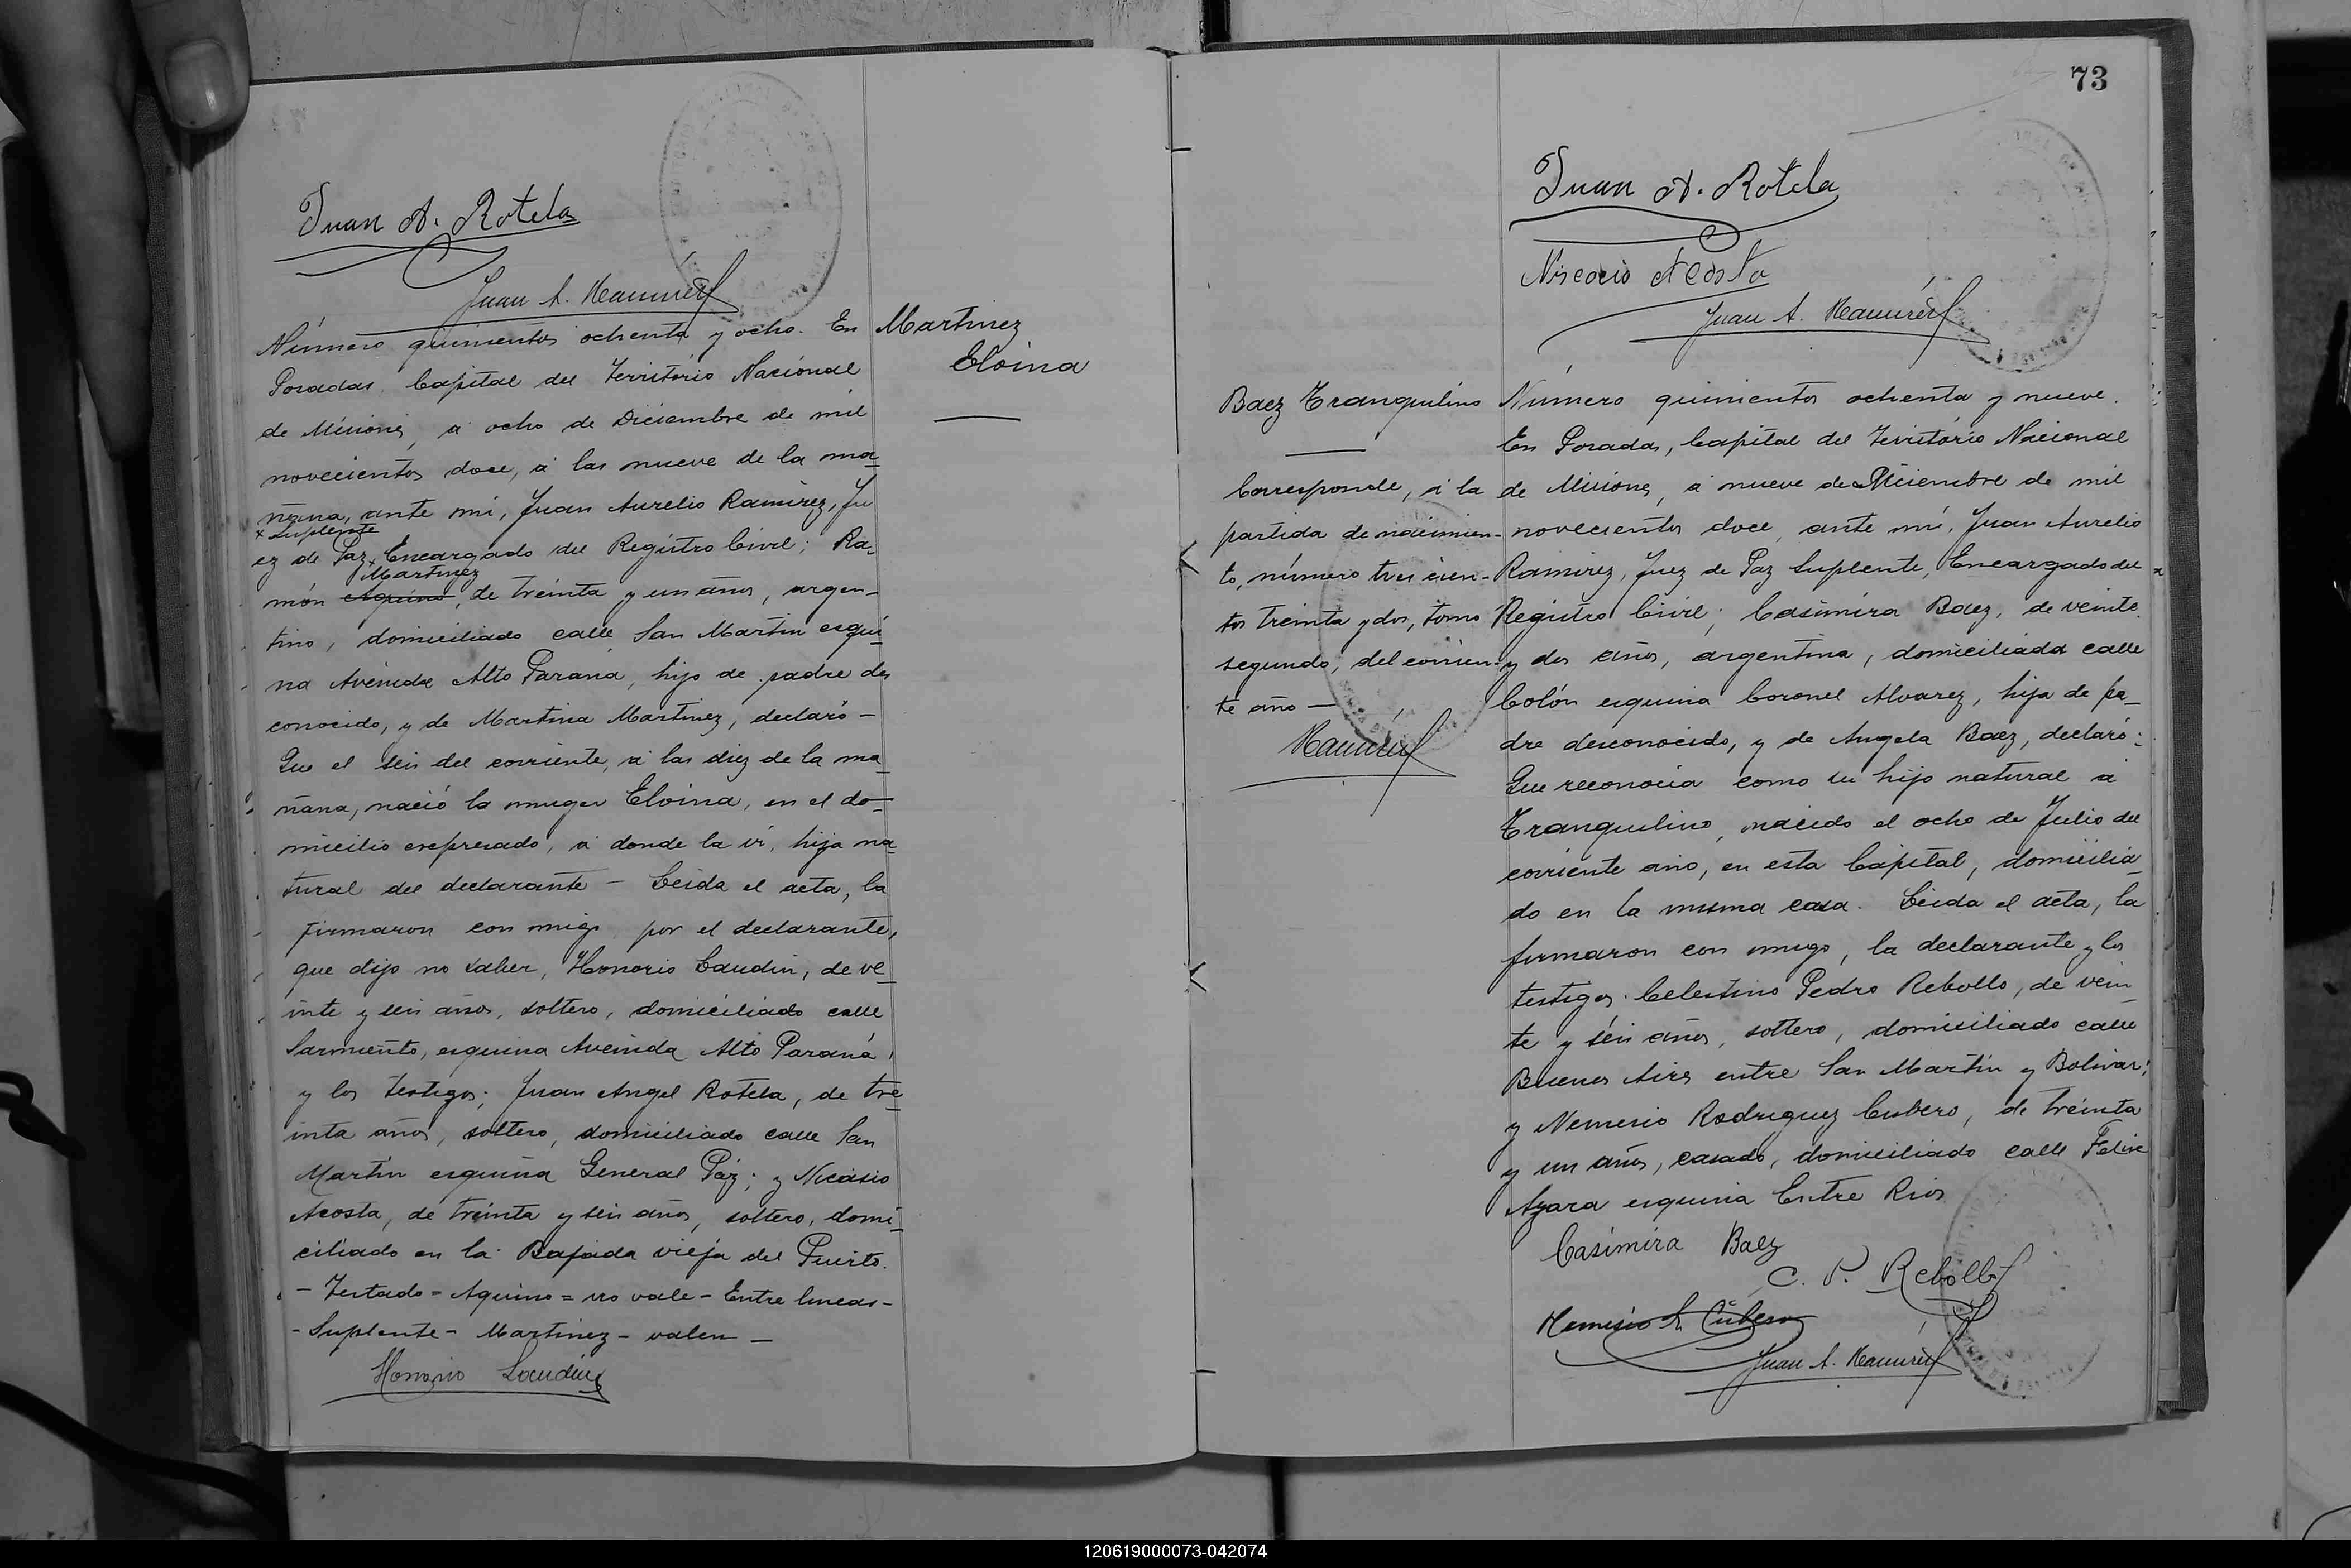 Juan A. Rotela
Juan A. Ramírez
Número quinientos ochenta y ocho. En
Posadas, Capital del Território Nacional
de Misiones, á ocho de Diciembre de mil
novecientos doce, á las nueve de la ma_
ñana, ante mí, Juan Aurelio Ramírez, Ju
x Suplente
ez de Paz x Encargado del Registro Civil; Ra_
Martinez
món Aquino, de treinta y un años, argen_
tino, domiciliado calle San Martín esqui_
na Avenida Alto Paraná, hijo de padre des
conocido, y de Martina Martinez, declaró —
Que el seis del corriente, á las diez de la ma_
ñana, nació la muger Eloina, en el do_
micilio expresado, á donde la ví, hija na_
tural del declarante — Leida el acta, la
firmaron con migo por el declarante,
que dijo no saber, Honorio Laudin, de ve_
inte y seis años, soltero, domiciliado calle
Sarmiento, esquina Avenida Alto Paraná,
y los testigos; Juan Angel Rotela, de tre_
inta años, soltero, domiciliado calle San
Martín esquina General Páz; y Nicasio
Acosta, de treinta y seis años, soltero, domi_
ciliado en la Bajada vieja del Puerto.
— Testado = Aquino = no vale — Entre lineas —
- Suplente - Martinez - valen —
Honorio Laudin
Martinez
Eloina
73
Juan A. Rotela
Nicacio Acosta
Juan A. Ramírez
Baez Tranquilino
Corresponde, á la
partida de nacimien-
to, número tres cien-
tos treinta y dos, tomo
segundo, del corrien-
te año —
Ramírez
Número quinientos ochenta y nueve.
En Posadas, Capital del Território Nacional
de Misiones, á nueve de Diciembre de mil
novecientos doce, ante mí, Juan Aurelio
Ramirez, Juez de Paz Suplente, Encargado del
Registro Civil; Casimira Baez, de veinte
y dos años, argentina, domiciliada calle
Colón esquina Coronel Alvarez, hija de pa_
dre desconocido, y de Angela Baez, declaró:
Que reconocia como su hijo natural á
Tranquilino, nacido el ocho de Julio del
corriente año, en esta Capital, domicilia_
do en la misma casa. Leida el acta, la
firmaron con migo, la declarante y los
testigos: Celestino Pedro Rebollo, de vein_
te y seis años, soltero, domiciliado calle
Buenos Aires entre San Martín y Bolivar;
y Nemesio Rodriguez Cubero, de treinta
y un años, casado, domiciliado calle Felix
Azara esquina Entre Rios
Casimira Baez
C. P. Rebollo
Nemesio R. Cubero
Juan A. Ramírez
120619000073-042074